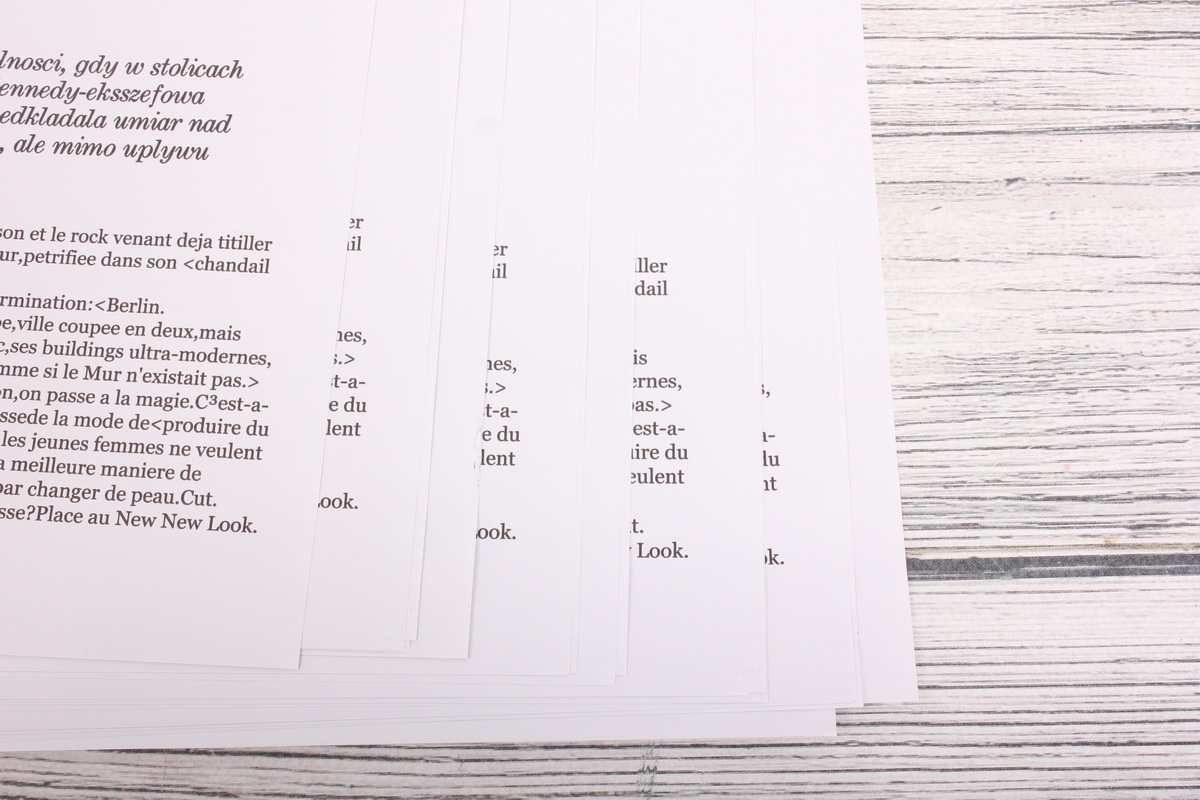 lnosci, gdy w stolicach
ennedy-eksszefowa
edkladala umiar nad
, ale mimo uplywu
son et le rock venant deja titiller
ur,petrifiee dans son <chandail
rmination:<Berlin.
pe,ville coupee en deux,mais
c,ses buildings ultra-modernes,
mme si le Mur n'existait pas.>
on,on passe a la magie.C³est-a-
ssede la mode de<produire du
les jeunes femmes ne veulent
a meilleure maniere de
par changer de peau.Cut.
sse?Place au New New Look.
er
ail
nes,
s.>
t-a-
e du
lent
Look.
er
ail
nes,
s.>
t-a-
e du
lent
Look.
iller
dail
is
ernes,
pas.>
est-a-
uire du
eulent
t.
Look.
s,
a-
du
nt
ok.